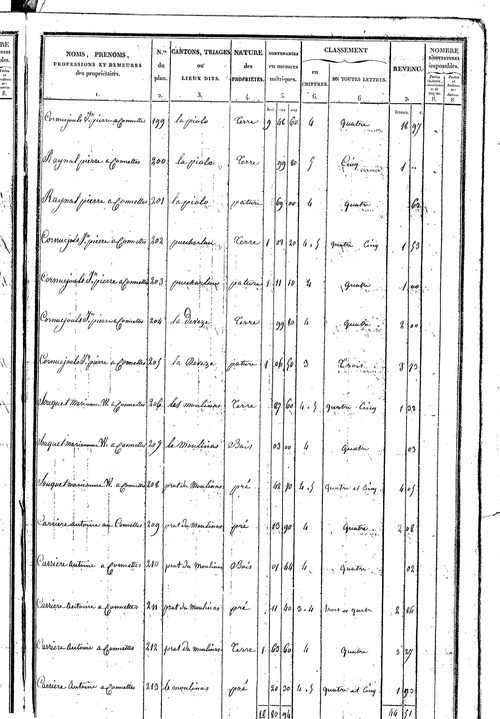 NOMS, PRENOMS, PROFESSIONS ET DEMEURES des propriétaires. N.os du plan. CANTONS, TRIAGES, ou LIEUX DITS. NATURE des PROPRIÉTÉS. CONTENANCES en mesures métriques. CLASSEMENT en CHIFFRES. EN TOUTES LETTRES. REVENU. NOMBRE D'OUVERTURES imposables.
1. 2. 3. 4. 5. 6. 6 7. 8. 8.
Cornuejouls Jn pierre a Comettes 199 la piolo Terre 9 48 60 4 Quatre 18 97
Raynal pierre a Comettes 200 la piolo Terre 99 80 5 Cinq 1 ..
Raynal pierre a Comettes 201 la piolo pature 69 00 4 Quatre 62
Cornuejouls Jn pierre a Comettes 202 Terre 1 02 20 4.5 quatre Cinq 1 53
Cornuejouls Jn pierre a Comettes 203 pature 1 11 10 4 Quatre 1 00
Cornuejouls Jn pierre a Comettes 204 la Deveze Terre 99 80 4 Quatre 2 00
Cornuejouls Jn pierre a Comettes 205 la Deveze pature 1 06 50 3 Trois 3 73
Souquet Marianne W. a Comettes 206 les moulinas Terre 87 60 4.5 quatre Cinq 1 32
Souquet marianne W. a Comettes 207 le Moulinas Bois 03 00 4 Quatre 03
Souquet marianne W. a Comettes 208 prat du Moulinas pré 48 90 4.5 quatre et Cinq 4 05
Carriere Antoine au Comettes 209 prat du Moulinas pré 13 90 4 Quatre 2 08
Carriere Antoine a Comettes 210 prat du Moulinas Bois 01 64 4 Quatre 02
Carriere Antoine a Comettes 211 prat du Moulinas pré 11 40 3.4 trois et quatre 2 86
Carriere Antoine a Comettes 212 prat du Moulinas Terre 1 63 60 4 Quatre 3 27
Carriere Antoine a Comettes 213 le moulinas pré 20 30 4.5 Quatre et Cinq 1 93
18 80 94 44 51